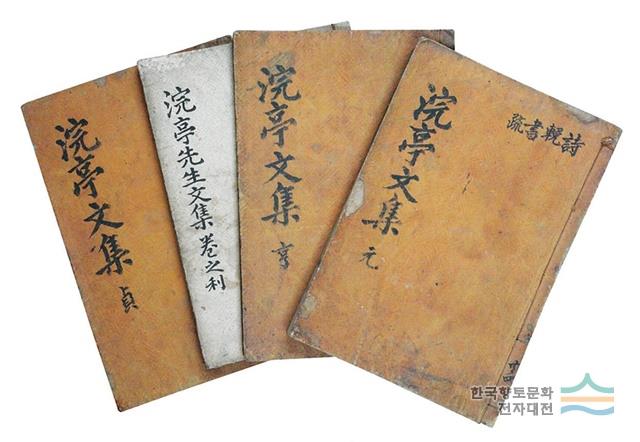 浣亭文集 貞
浣亭先生文集 卷之利
浣亭文集 亨
浣亭文集 元
詩輓書疏
한국향토문화
전자대전